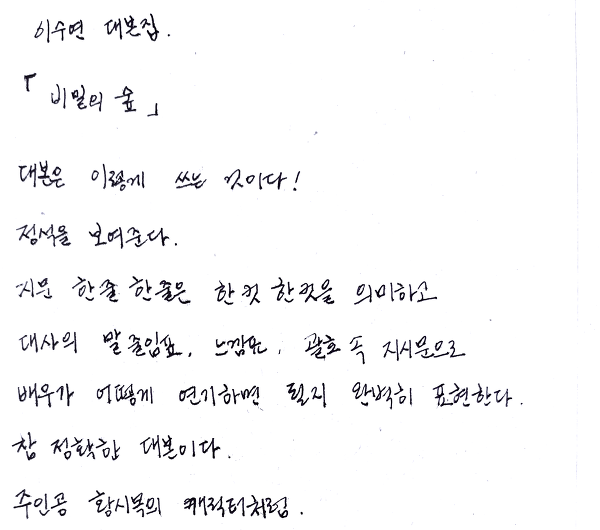 이수연 대본집.
「비밀의 숲」
대본은 이렇게 쓰는 것이다!
정석을 보여준다.
지문 한줄 한줄은 한컷 한컷을 의미하고
대사의 말줄임표, 느낌표, 괄호 속 지시문으로
배우가 어떻게 연기하면 될지 완벽히 표현한다.
참 정확한 대본이다.
주인공 황시목의 캐릭터처럼.